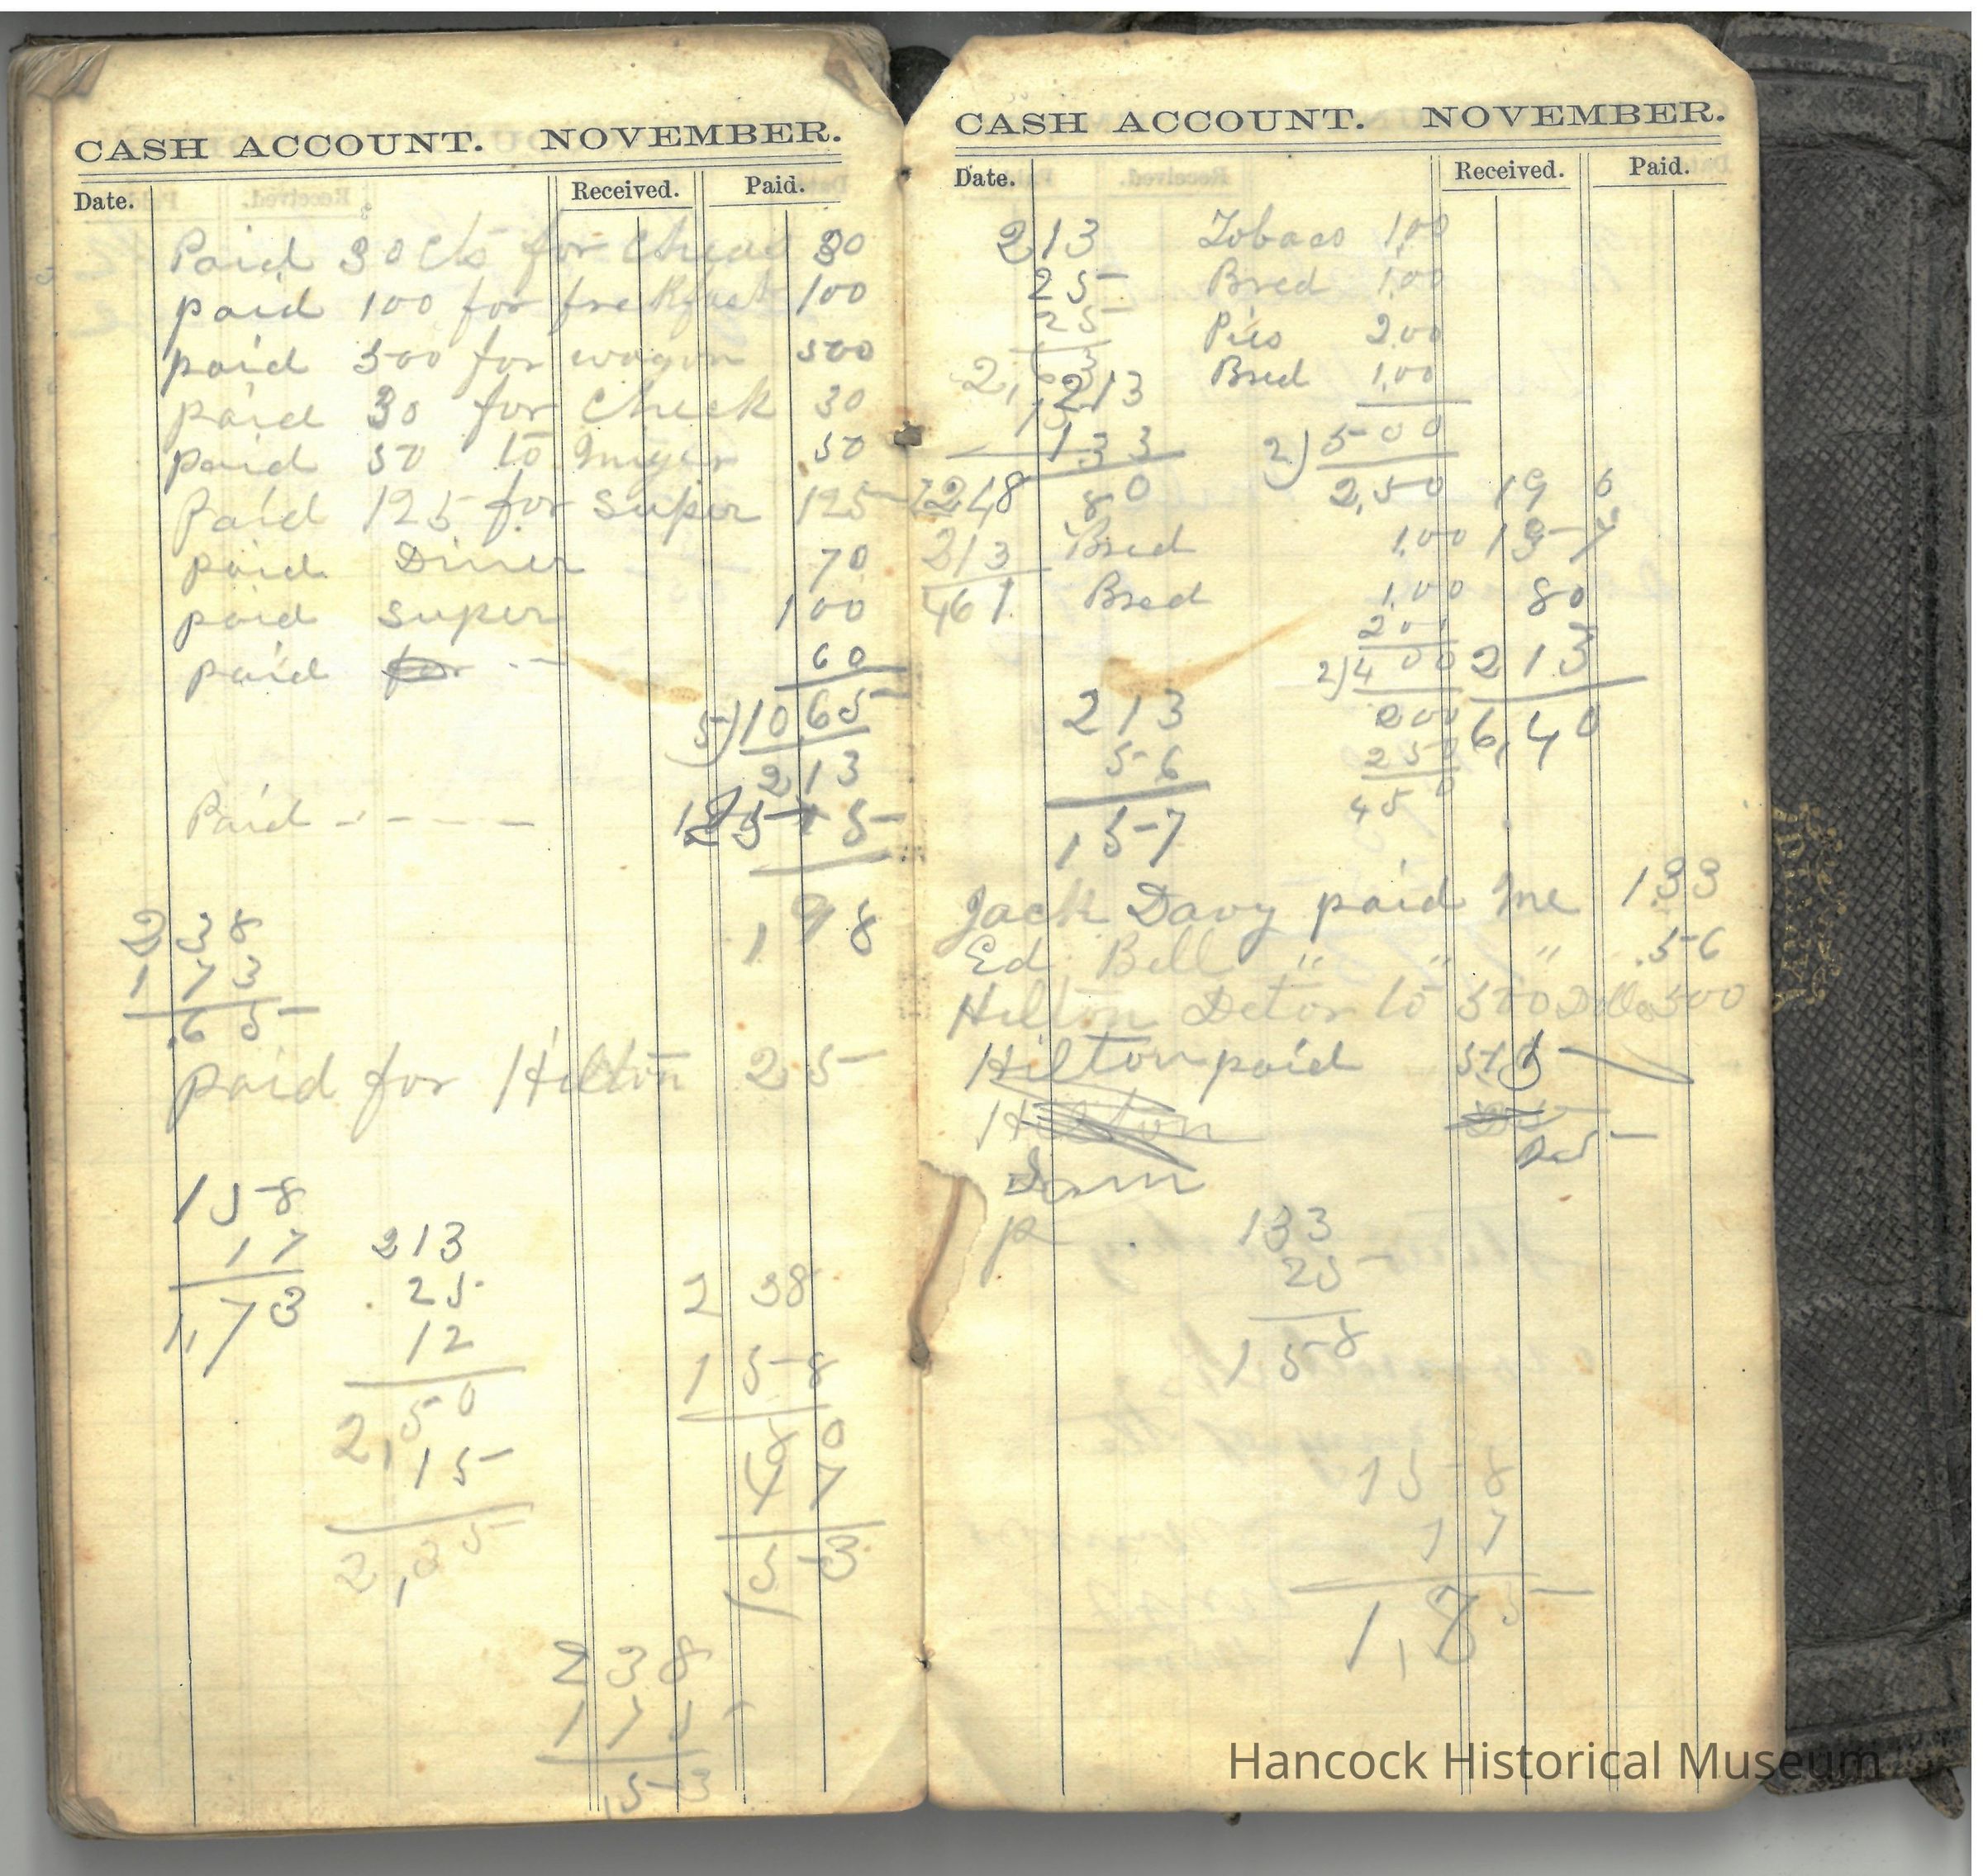 CASH ACCOUNT. NOVEMBER.
Date. Received. Paid.
Paid 30 cts for 30
paid 100 for frekfast 100
paid 500 for wagon 500
paid 30 for Check 30
paid 50 to 50
Paid 125 for super 125
paid Diner 70
paid super 100
paid for 60
5)1065
213
Paid - - - - -
198
238
173
.65
paid for Hilton 25
158
17
1,73
213
25
12
2,50
15
2,35
238
158
80
153
238
153
CASH ACCOUNT. NOVEMBER.
Date. Received. Paid.
213 Tobaco 1,00
25 Bred 1,00
25 Pies 2,00
2,63 Bred 1,00
213
133 2)500
80 2,50 19 6
248
213 Bred 1,00
461 Bred 1,00 80
2)400 213
200 6,40
250
450
213
56
157
Jack Davy paid Me 1.33
Ed Bell " " " .56
Hilton Detor to 500 500
Hilton paid
Hilton
133
25
158
158
17
1,75
Hancock Historical Museum